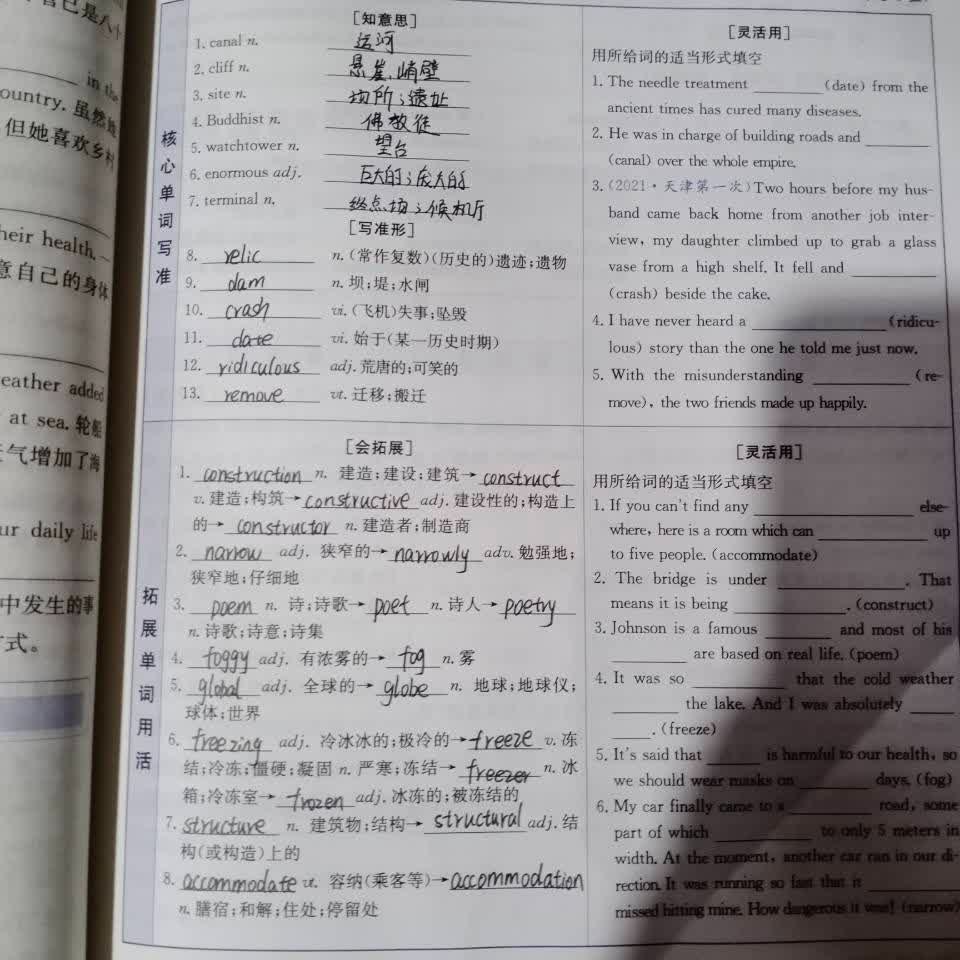 官已是八个
in the
ountry. 虽然她
但她喜欢乡村
heir health.
意自己的身体
eather added
at sea. 轮船
气增加了海
ur daily life
中发生的事
式。
核心单词写准
[知意思]
1. canal n. 运河
2. cliff n. 悬崖,峭壁
3. site n. 场所;遗址
4. Buddhist n. 佛教徒
5. watchtower n. 望台
6. enormous adj. 巨大的;庞大的
7. terminal n. 终点站;候机厅
[写准形]
8. relic n. (常作复数)(历史的)遗迹;遗物
9. dam n. 坝;堤;水闸
10. crash vi. (飞机)失事;坠毁
11. date vi. 始于(某一历史时期)
12. ridiculous adj. 荒唐的;可笑的
13. remove vt. 迁移;搬迁
[灵活用]
用所给词的适当形式填空
1. The needle treatment ______ (date) from the
ancient times has cured many diseases.
2. He was in charge of building roads and ______
(canal) over the whole empire.
3. (2021·天津第一次) Two hours before my hus-
band came back home from another job inter-
view, my daughter climbed up to grab a glass
vase from a high shelf. It fell and ______
(crash) beside the cake.
4. I have never heard a ______ (ridicu-
lous) story than the one he told me just now.
5. With the misunderstanding ______ (re-
move), the two friends made up happily.
拓展单词用活
[会拓展]
1. construction n. 建造;建设;建筑→construct
v. 建造;构筑→constructive adj. 建设性的;构造上
的→constructor n. 建造者;制造商
2. narrow adj. 狭窄的→narrowly adv. 勉强地;
狭窄地;仔细地
3. poem n. 诗;诗歌→poet n. 诗人→poetry
n. 诗歌;诗意;诗集
4. foggy adj. 有浓雾的→fog n. 雾
5. global adj. 全球的→globe n. 地球;地球仪;
球体;世界
6. freezing adj. 冷冰冰的;极冷的→freeze v. 冻
结;冷冻;僵硬;凝固 n. 严寒;冻结→freezer n. 冰
箱;冷冻室→frozen adj. 冰冻的;被冻结的
7. structure n. 建筑物;结构→structural adj. 结
构(或构造)上的
8. accommodate vt. 容纳(乘客等)→accommodation
n. 膳宿;和解;住处;停留处
[灵活用]
用所给词的适当形式填空
1. If you can't find any ______ else-
where, here is a room which can ______ up
to five people. (accommodate)
2. The bridge is under ______. That
means it is being ______. (construct)
3. Johnson is a famous ______ and most of his
______ are based on real life. (poem)
4. It was so ______ that the cold weather
______ the lake. And I was absolutely ______
______. (freeze)
5. It's said that ______ is harmful to our health, so
we should wear masks on ______ days. (fog)
6. My car finally came to a ______ road, some
part of which ______ to only 5 meters in
width. At the moment, another car ran in our di-
rection. It was running so fast that it ______
missed hitting mine. How dangerous it was! (narrow)